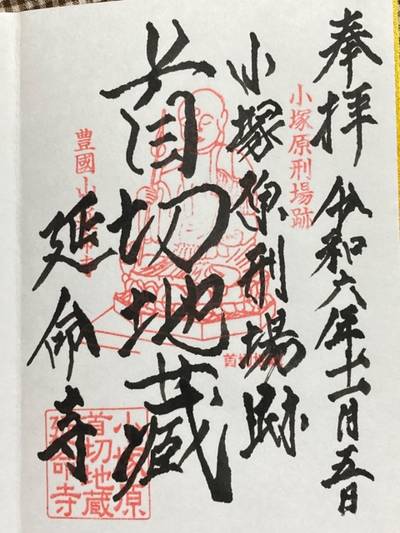 奉拝 令和六年十一月五日
小塚原刑場跡
小塚原刑場跡
首切地蔵
豊國山延命寺
延命寺
首切地蔵
小塚原
首切地蔵
延命寺